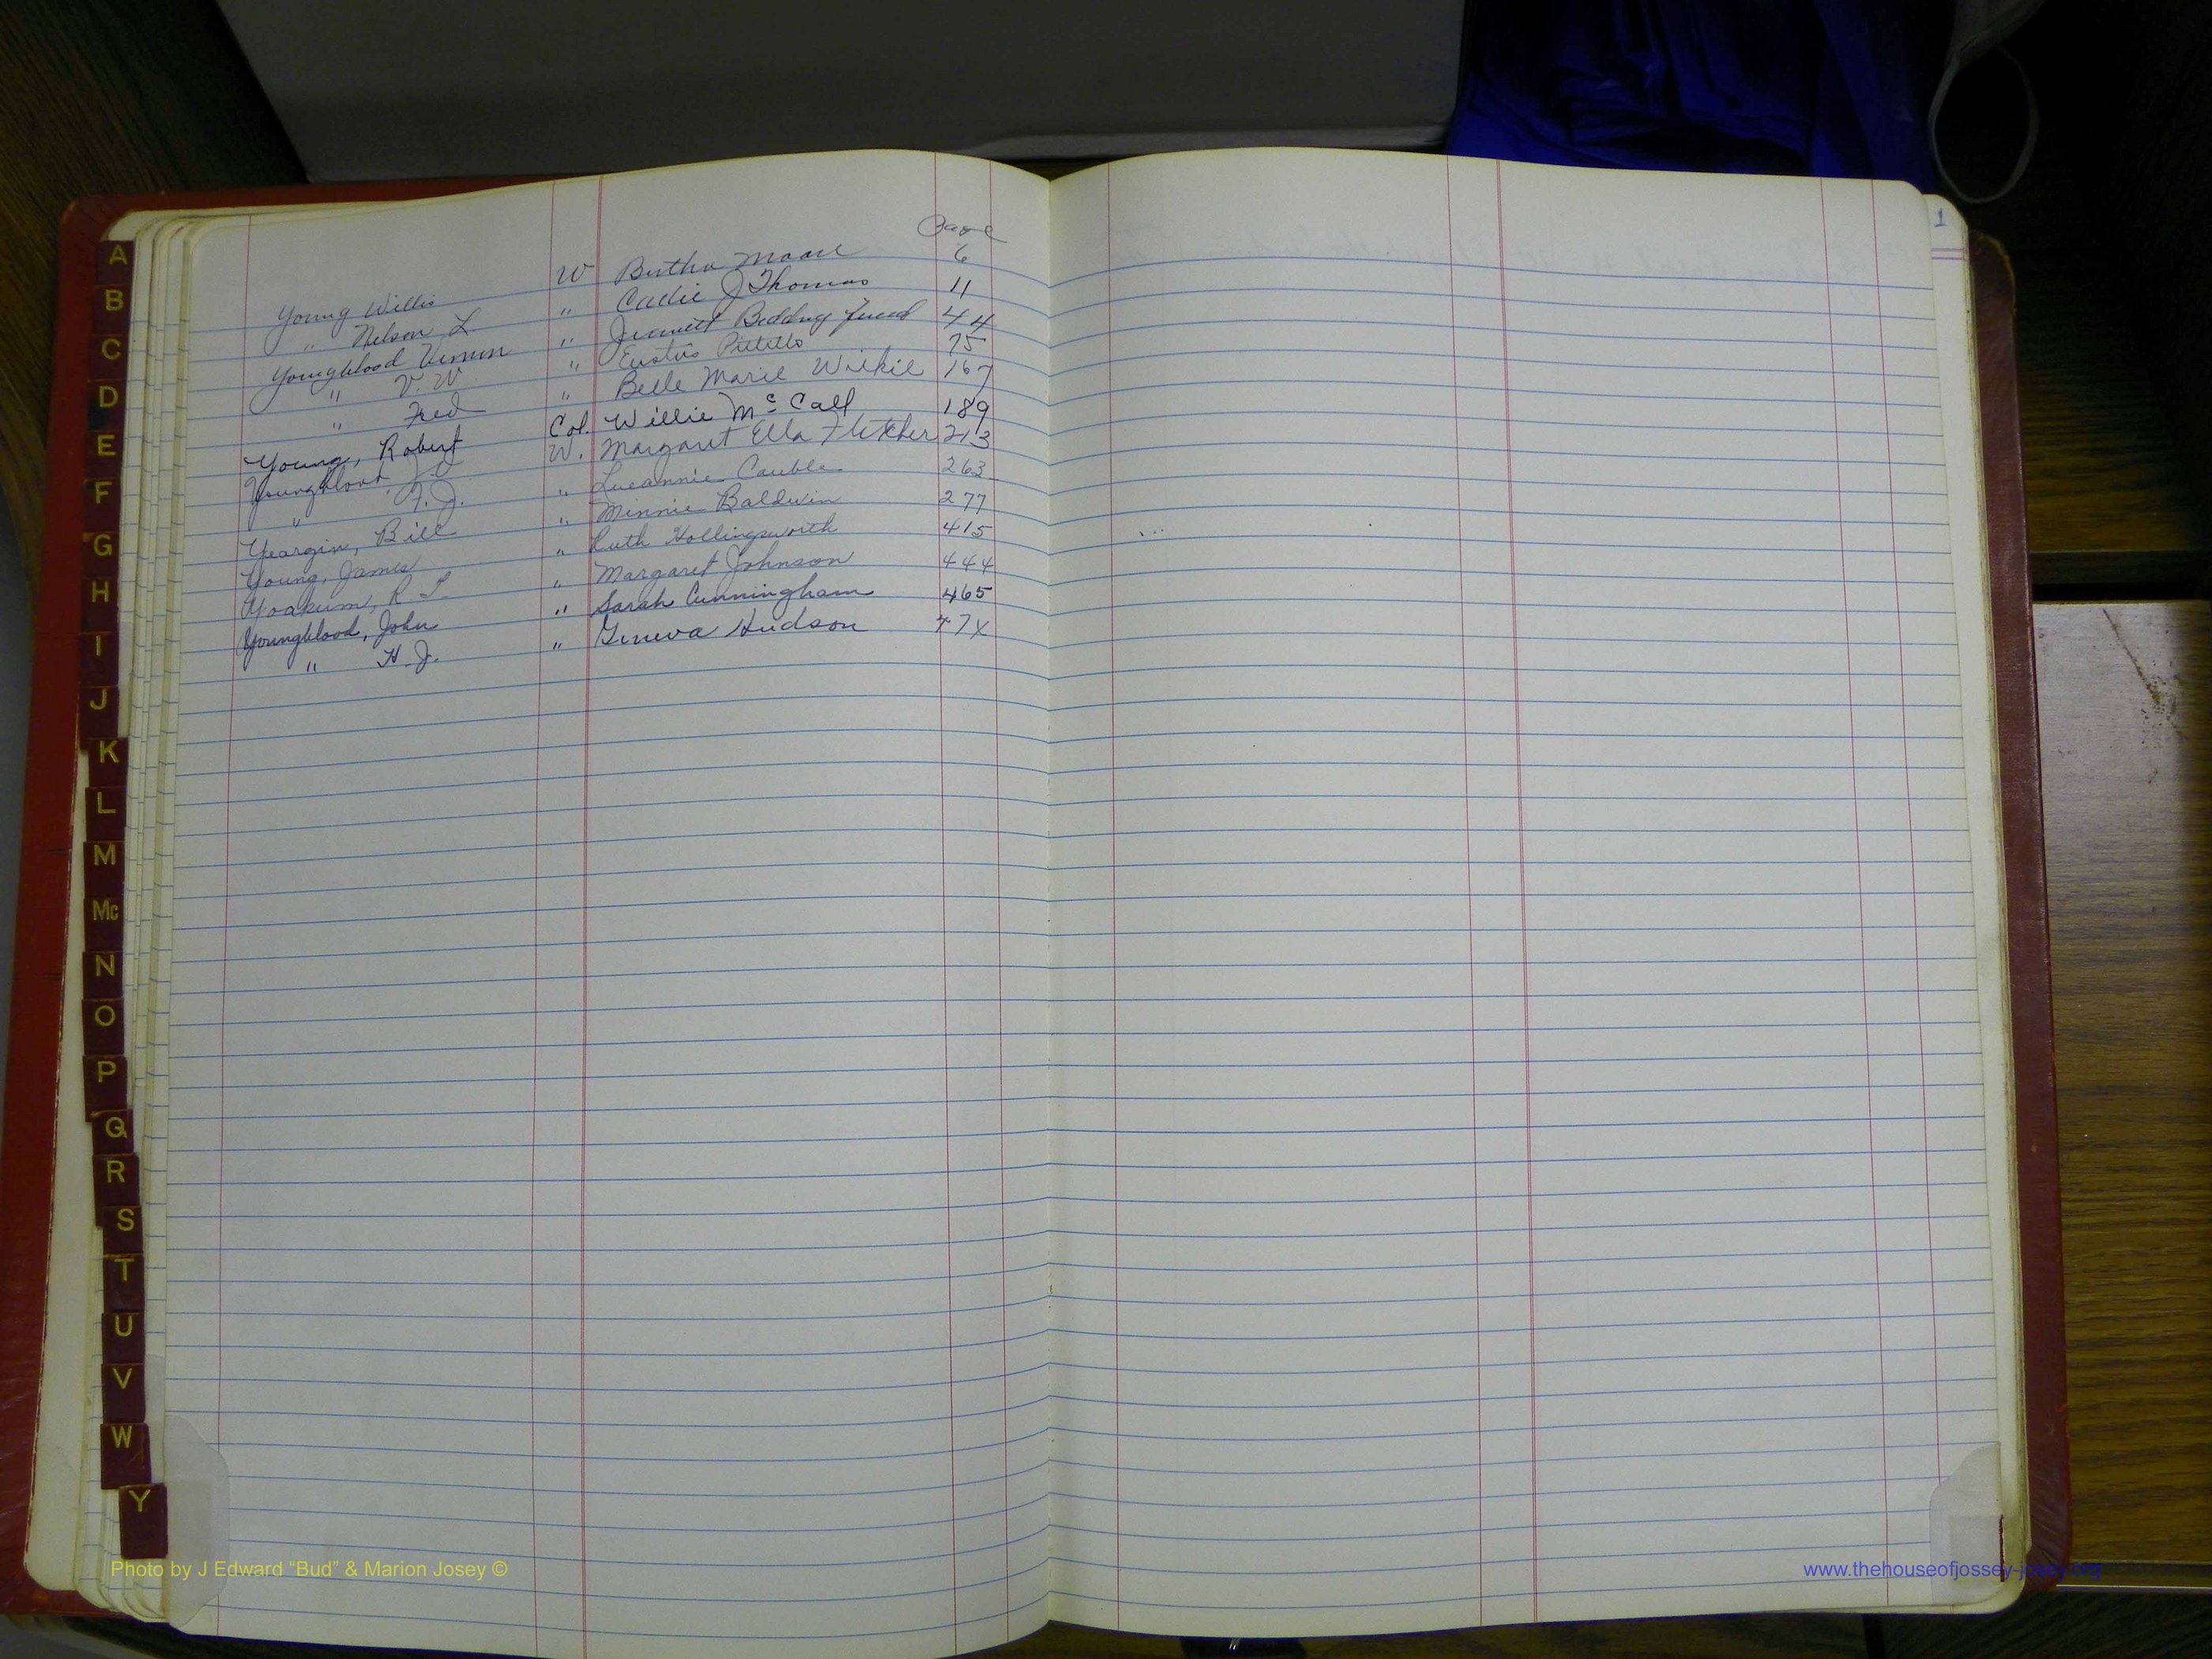 Page
Young Willis W Bertha Moore 6
" Nelson L " Callie J Thomas 11
Youngblood Vernon " Jeanett Bedding 44
" V. W. " Pittillo 75
" Fred " Belle Marie Wilkie 167
Young, Robert Col. Willie McCall 189
Youngblood W. Margaret Ella Fletcher 213
" " Lueannie Cauble 263
Yeargin, Bill " Minnie Baldwin 277
Young, James " Ruth Hollingsworth 415
Yoakum, R " Margaret Johnson 444
Youngblood, John " Sarah Cunningham 465
" H. J. " Geneva Hudson
1
A
B
C
D
E
F
G
H
I
J
K
L
M
Mc
N
O
P
Q
R
S
T
U
V
W
Y
Photo by J Edward “Bud” & Marion Josey ©
www.thehouseofjossey-josey.org